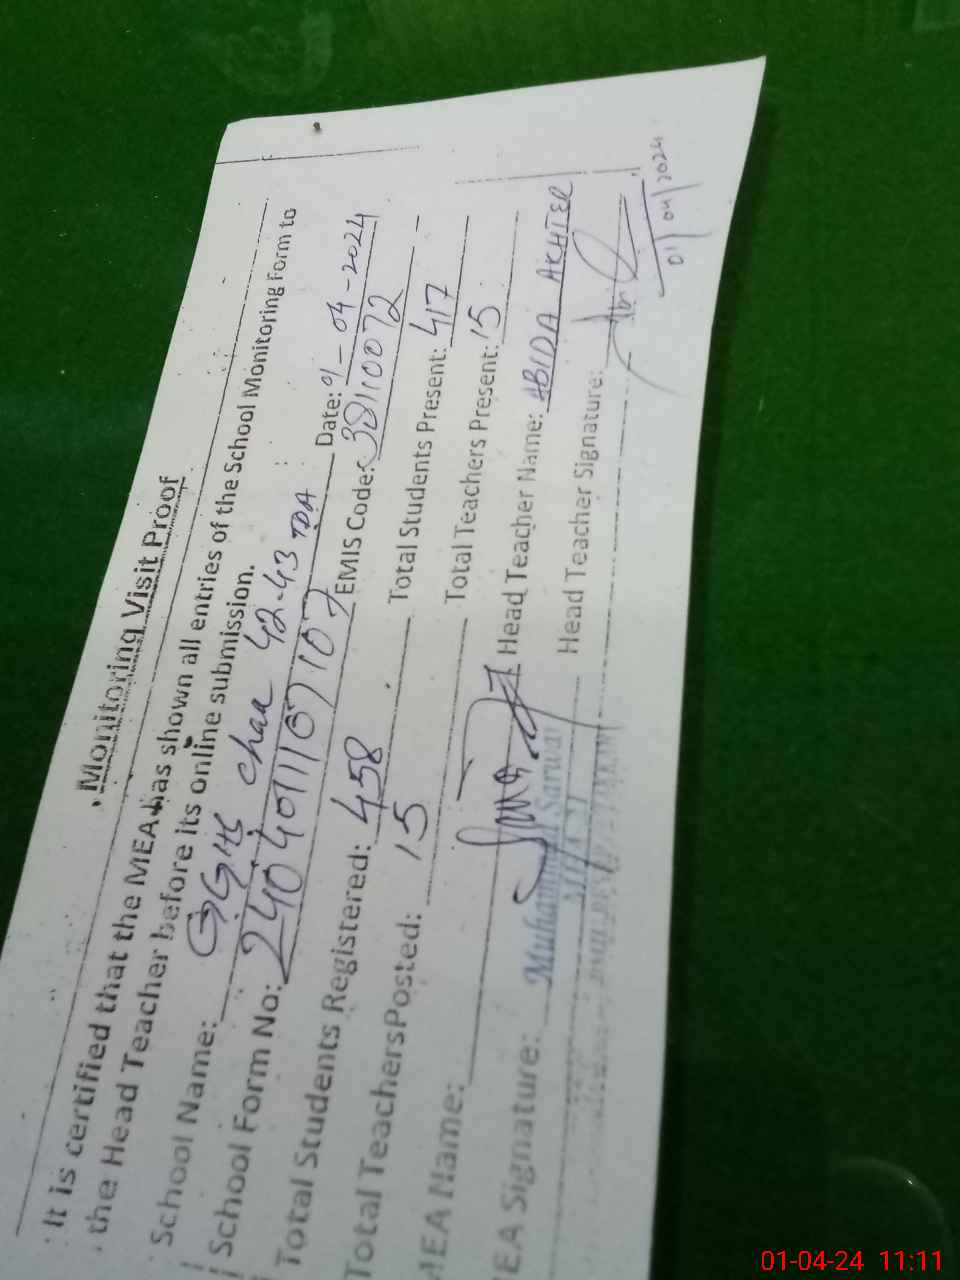 Monitoring Visit Proof
It is certified that the MEA has shown all entries of the School Monitoring Form to
the Head Teacher before its online submission.
School Name: GGHS Chak 42-43 TDA Date: 01-04-2024
School Form No: EMIS Code: 38110072
Total Students Registered: 458 Total Students Present: 417
Total TeachersPosted: 15 Total Teachers Present: 15
MEA Name: Head Teacher Name: ABIDA AKHTER
EA Signature: Head Teacher Signature:
Muhammad Sarwar
01/04/2024
01-04-24 11:11